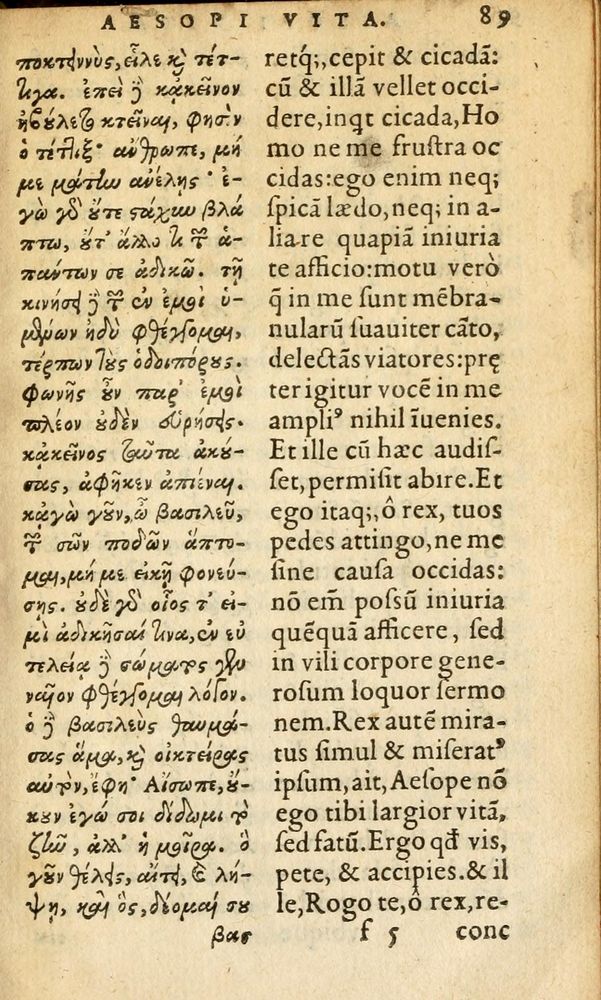 AESOPI VITA. 89
ποκτιννὺς, εἷλε καὶ τέτ-
τιγα. ἐπεὶ δὲ κἀκεῖνον
ἠβούλετο κτεῖναι, φησὶν
ὁ τέττιξ· ἄνθρωπε, μή
με μάτην ἀνέλῃς· ἐ-
γὼ γὰρ οὔτε στάχυν βλά
πτω, οὔτ' ἄλλο τι τῶν ἁ-
πάντων σε ἀδικῶ. τῇ
κινήσει δὲ τῶν ἐν ἐμοὶ ὑ-
μένων ἡδὺ φθέγγομαι,
τέρπων τοὺς ὁδοιπόρους.
φωνῆς οὖν παρ' ἐμοὶ
πλέον οὐδὲν εὑρήσεις.
κἀκεῖνος ταῦτα ἀκού-
σας, ἀφῆκεν ἀπιέναι.
κἀγὼ γοῦν, ὦ βασιλεῦ,
τῶν σῶν ποδῶν ἅπτο-
μαι, μή με εἰκῆ φονεύ-
σῃς. οὐδὲ γὰρ οἷός τ' εἰ-
μὶ ἀδικῆσαί τινα, ἐν εὐ
τελείᾳ δὲ σώματος γεν
ναῖον φθέγγομαι λόγον.
ὁ δὲ βασιλεὺς θαυμά-
σας ἅμα, καὶ οἰκτείρας
αὐτὸν, ἔφη· Αἴσωπε, οὔ-
κουν ἐγώ σοι δίδωμι τὸ
ζῆν, ἀλλ' ἡ μοῖρα. ὃ
γοῦν θέλεις, αἴτει, καὶ λή-
ψῃ, καὶ ὃς, δέομαί σου
βασ
retq;, cepit & cicadã:
cũ & illã vellet occi-
dere, inqt cicada, Ho
mo ne me frustra oc
cidas: ego enim neq;
spicã lædo, neq; in a-
lia re quapiã iniuria
te afficio: motu verò
q̃ in me sunt mẽbra-
nularũ suauiter cãto,
delectãs viatores: prę
ter igitur vocẽ in me
ampliꝰ nihil ĩuenies.
Et ille cũ hæc audis-
set, permisit abire. Et
ego itaq;, ô rex, tuos
pedes attingo, ne me
sine causa occidas:
nõ em̃ possũ iniuria
quẽquã afficere, sed
in vili corpore gene-
rosum loquor sermo
nem. Rex autẽ mira-
tus simul & miseratꝰ
ipsum, ait, Aesope nõ
ego tibi largior vitã,
sed fatũ. Ergo qđ vis,
pete, & accipies. & il
le, Rogo te, ô rex, re-
f 5 conc